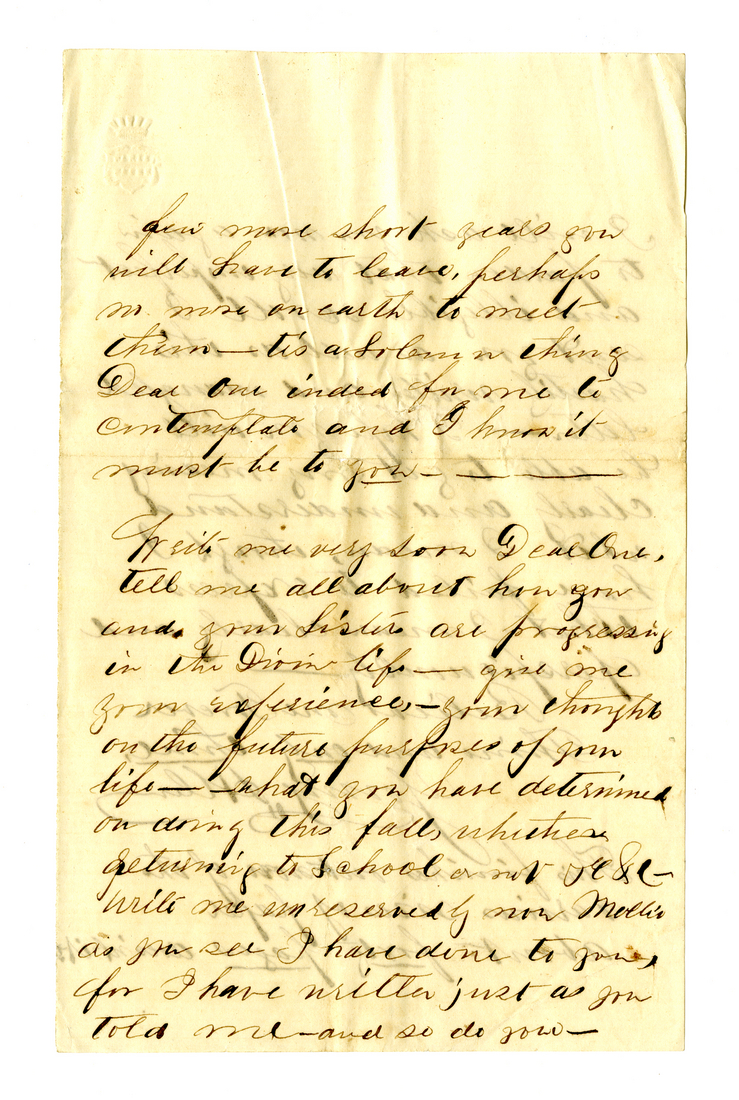 few more short years you
will have to leave, perhaps
no more on earth to meet
them — tis a Solemn thing
Dear One inded for me to
contemplate and I know it
must be to you — — —
Write me very soon Dear One,
tell me all about how you
and your Sisters are progressing
in the Divin life — give me
your experience, — your thoughts
on the future purposes of your
life — — what you have determined
on doing this fall, whether
returning to School or not &c &c —
Write me unreservedly now Mollie
as you see I have done to you,
for I have written just as you
told me — and so do you —